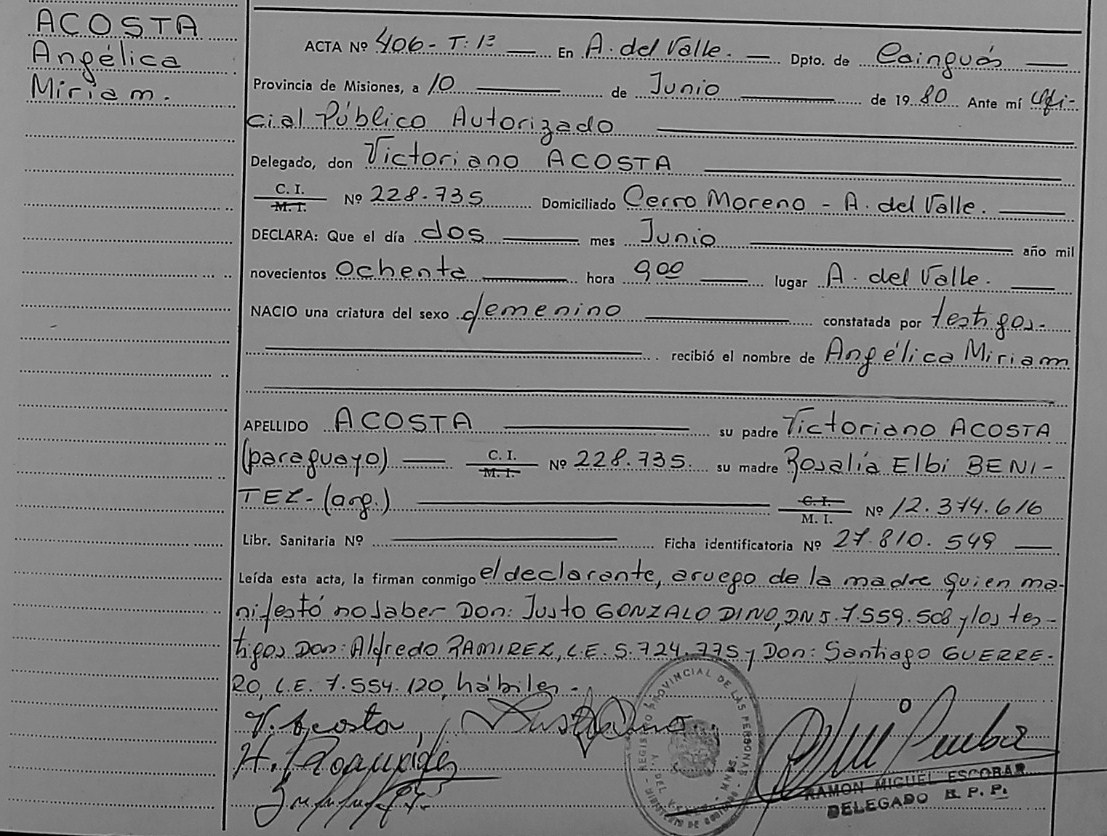 ACOSTA
Angélica
Miriam.
ACTA Nº 406 - T: 1º — En A. del Valle. — Dpto. de Cainguás —
Provincia de Misiones, a 10 — de Junio — de 1980 Ante mí Ofi-
cial Público Autorizado —
Delegado, don Victoriano ACOSTA —
C. I. M. I. Nº 228.735 Domiciliado Cerro Moreno - A. del Valle. —
DECLARA: Que el día dos — mes Junio — año mil
novecientos Ochenta — hora 9,00 — lugar A. del Valle. —
NACIO una criatura del sexo femenino — constatada por testigos.-
— recibió el nombre de Angélica Miriam
APELLIDO ACOSTA — su padre Victoriano ACOSTA
(paraguayo) — C. I. M. I. Nº 228.735. su madre Rosalía Elbi BENI-
TEZ - (arg.) — C. I. M. I. Nº 12.374.616
Libr. Sanitaria Nº — Ficha identificatoria Nº 27.810.549 —
Leída esta acta, la firman conmigo el declarante, a ruego de la madre quien ma-
nifestó no saber Don: Justo GONZALO DINO, DNI. 7.559.508 y los tes-
tigos Don: Alfredo RAMIREZ, C.E. 5.724.775 y Don: Santiago GUERRE-
RO, C.E. 7.554.120, hábiles.-
V. Acosta
REGISTRO PROVINCIAL DE LAS PERSONAS
RAMON MIGUEL ESCOBAR
DELEGADO R. P. P.